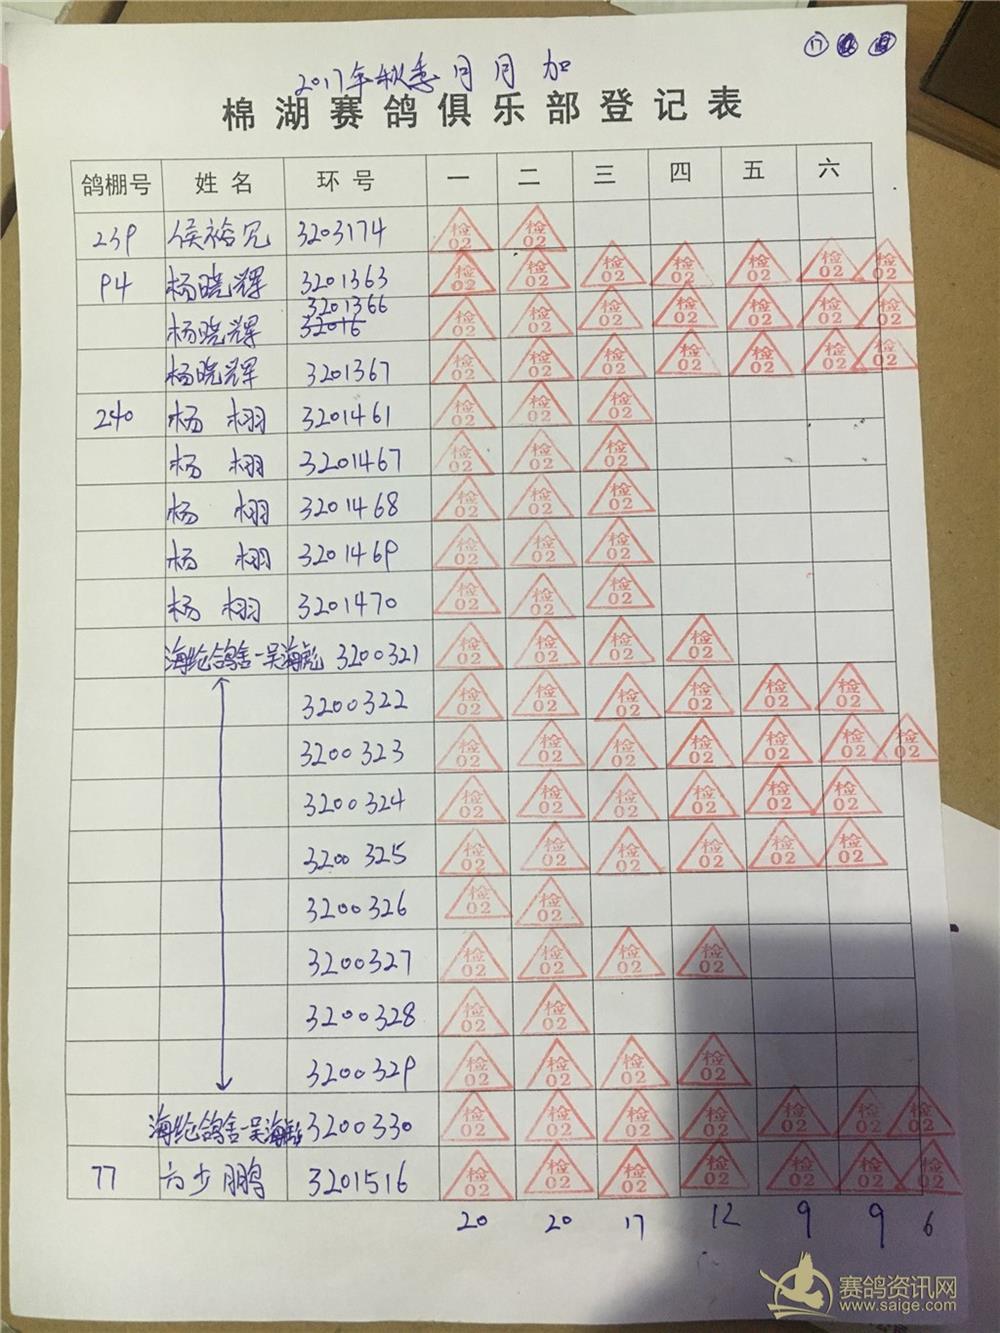 ⑰
2017年秋季 月 月 加
棉湖赛鸽俱乐部登记表
鸽棚号 姓名 环号 一 二 三 四 五 六
239 侯裕冗 3203174 检02 检02
94 杨晓辉 3201363 检02 检02 检02 检02 检02 检02 检02
杨晓辉 3201366 检02 检02 检02 检02 检02 检02 检02
杨晓辉 3201367 检02 检02 检02 检02 检02 检02 检02
240 杨栩 3201461 检02 检02 检02
杨栩 3201467 检02 检02 检02
杨栩 3201468 检02 检02 检02
杨栩 3201469 检02 检02 检02
杨栩 3201470 检02 检02 检02
海纶鸽舍-吴海彪 3200321 检02 检02 检02 检02
3200322 检02 检02 检02 检02 检02 检02
3200323 检02 检02 检02 检02 检02 检02 检02
3200324 检02 检02 检02 检02 检02 检02
3200325 检02 检02 检02 检02 检02 检02
3200326 检02 检02
3200327 检02 检02 检02 检02
3200328 检02 检02
3200329 检02 检02 检02 检02
海纶鸽舍-吴海彪 3200330 检02 检02 检02 检02 检02 检02 检02
77 方少鹏 3201516 检02 检02 检02 检02 检02 检02 检02
20 20 17 12 9 9 6
赛鸽资讯网
www.saige.com